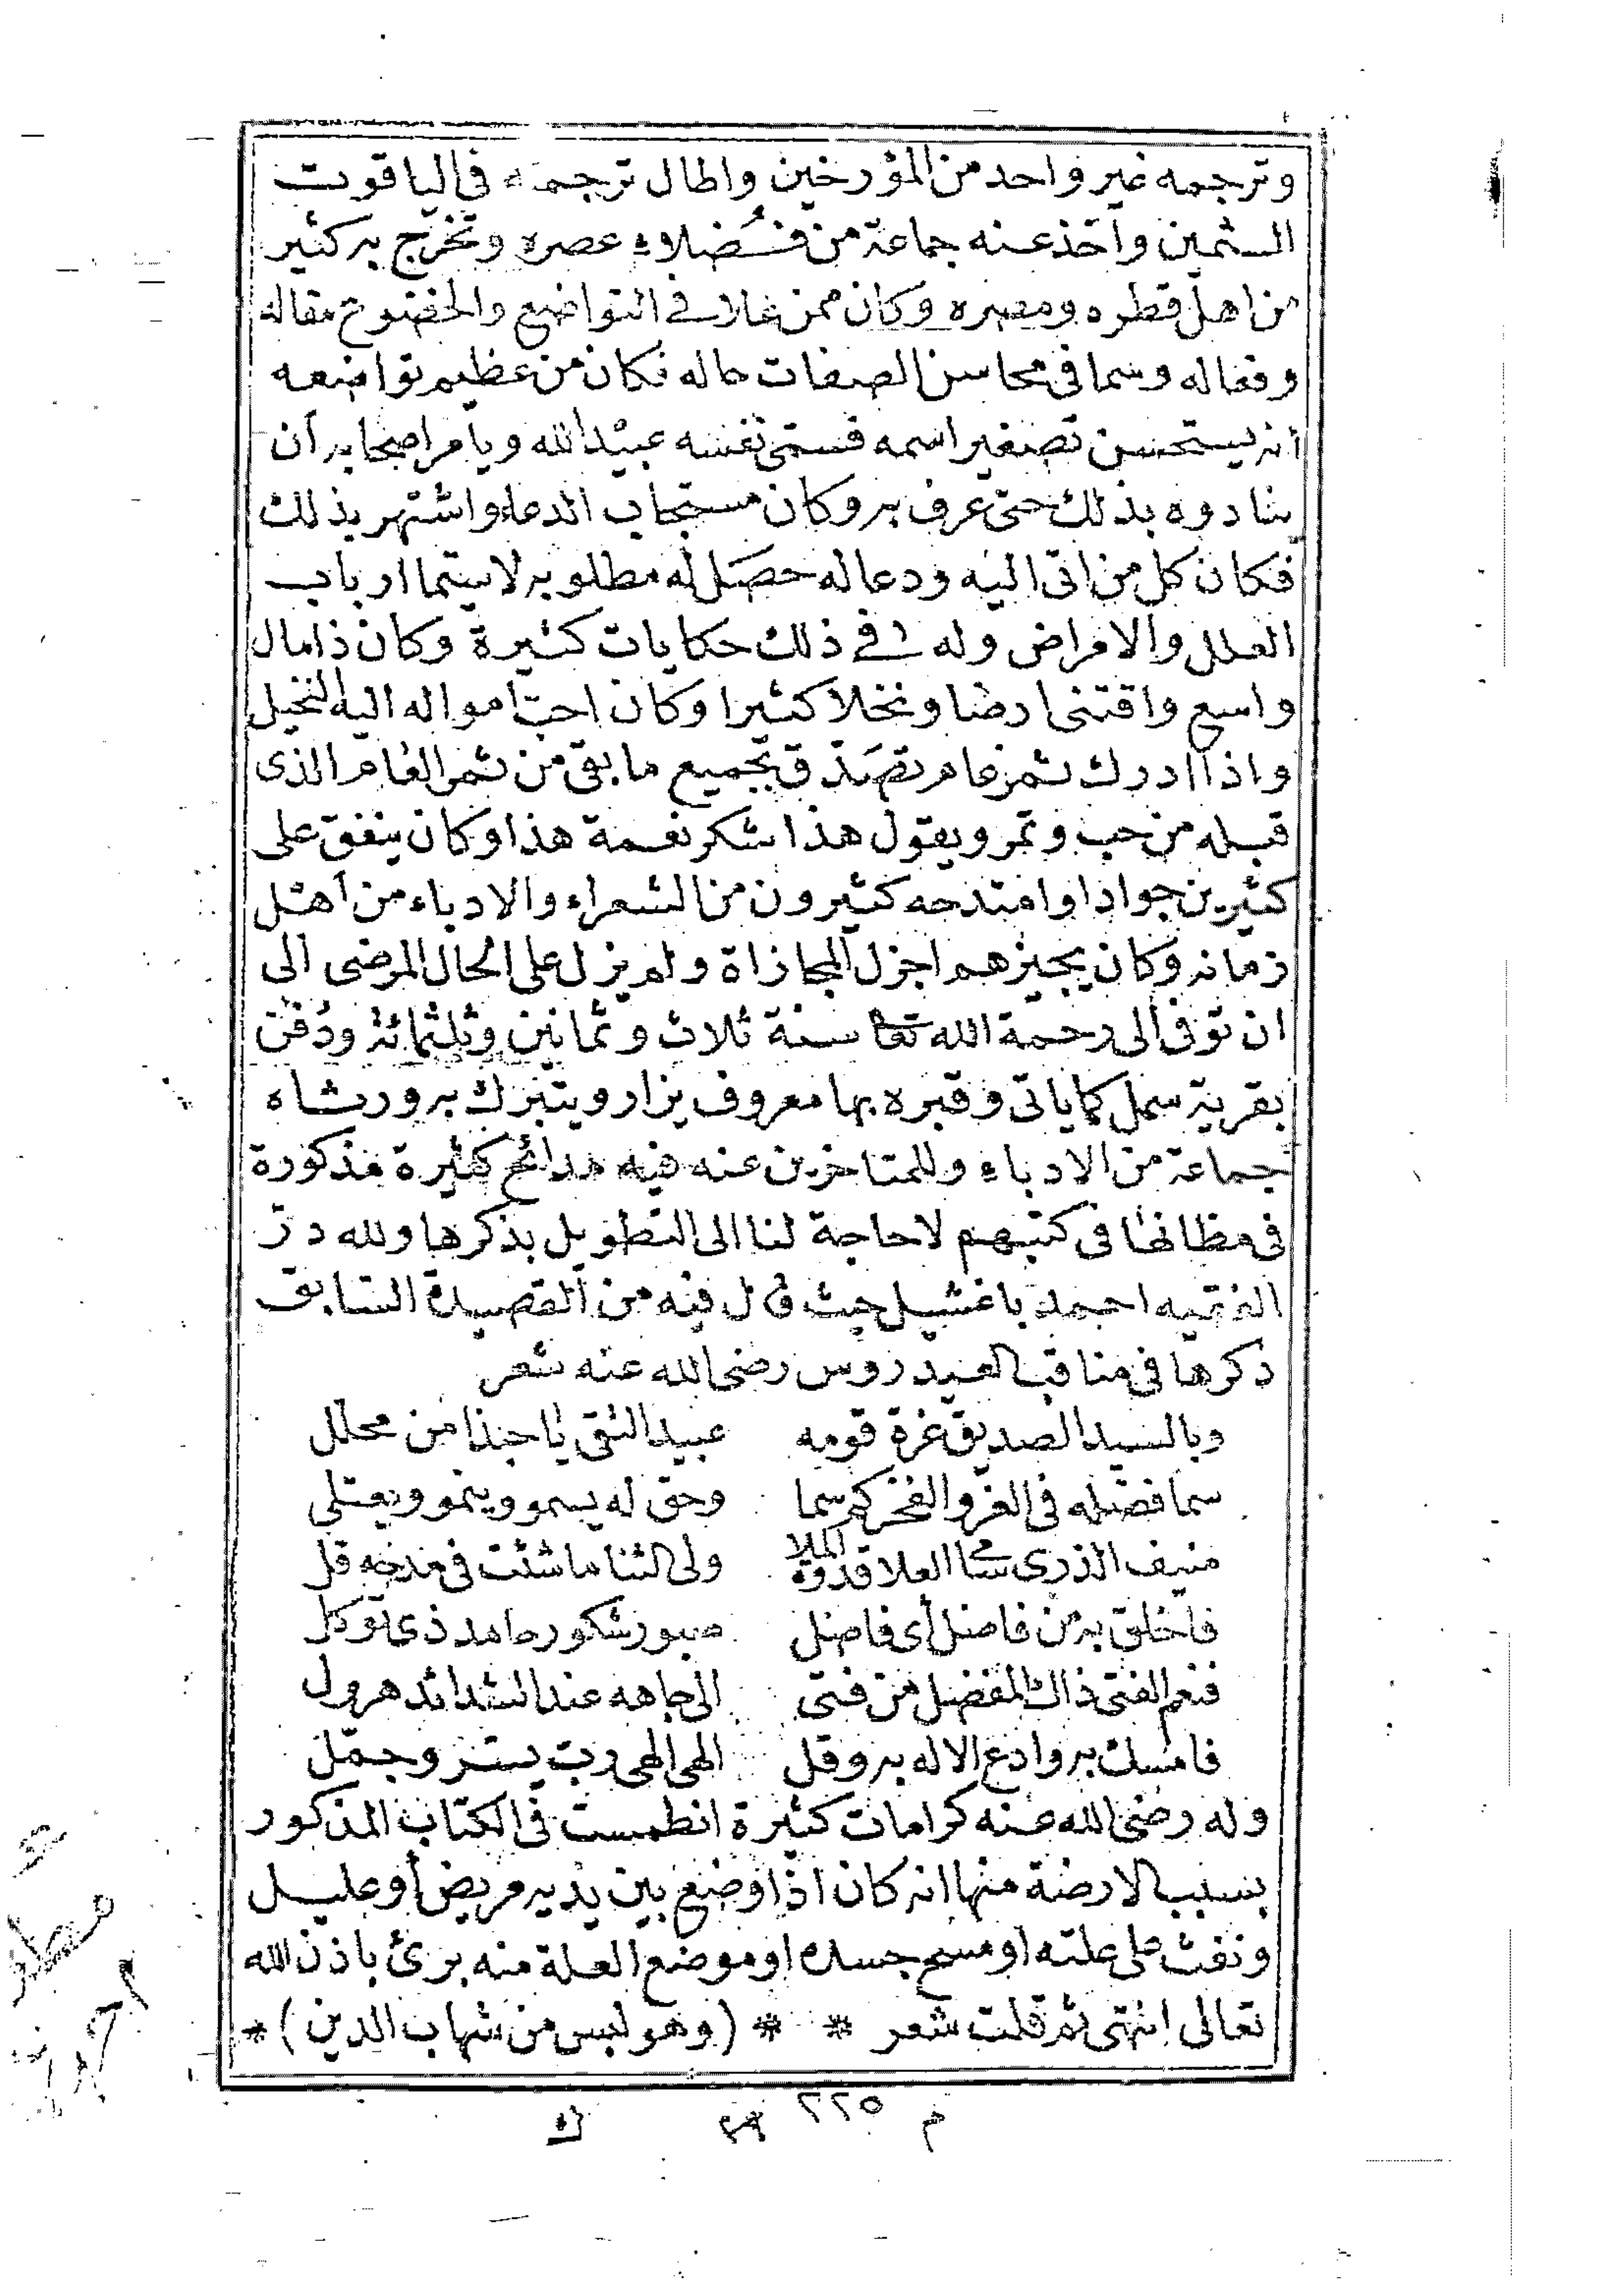 وترجمه غير واحد من المؤرخين واطال ترجمته في الياقوت
الثمين واخذ عنه جماعة من فُضلاء عصره وتخرّج به كثير
من اهل قطره ومصره وكان ممن غلا في التواضع والخضوع مقاله
وفعاله وسما في محاسن الصفات حاله فكان من عظيم تواضعه
أنه يستحسن تصغير اسمه فسمّى نفسه عبيْد الله ويأمر اصحابه أن
ينادوه بذلك حتى عرف به وكان مستجاب الدعاء واشتهر بذلك
فكان كل من اتى اليه ودعا له حصَل له مطلوبه لاسيّما ارباب
العلل والامراض وله في ذلك حكايات كثيرة وكان ذا مال
واسع واقتنى ارضا ونخلا كثيرا وكان احبّ امواله اليه النخيل
واذا ادرك ثمر عام تصَدّق بجميع ما بقي من ثمر العام الذى
قبله من حب وتمر ويقول هذا شكر نعمة هذا وكان ينفق على
كثيرين جوادا وامتدحه كثيرون من الشعراء والادباء من أهل
زمانه وكان يجيزهم اجزل المجازاة ولم يزل على الحال المرضى الى
ان توفى الى رحمة الله تعا سنة ثلاث وثمانين وثلثمائة ودُفن
بقرية سمل كما ياتى وقبره بها معروف يزار ويتبرّك به ورثاه
جماعة من الادباء وللمتاخرين عنه فيه مدائح كثيرة مذكورة
في مظانها في كتبهم لا حاجة لنا الى التطويل بذكرها ولله درّ
الفقيه احمد باغشيل حيث قال فيه من القصيدة السابق
ذكرها في مناقب العيدروس رضى الله عنه شعر
وبالسيد الصديق غرة قومه عبيد التقى يا حبذا من محلل
سما فضله في العز والفخر كم سما وحق له يسمو وينمو ويعتلى
منيف الذرى سامى العلا قدوة الملا ولى الثنا ما شئت في مدحه قل
فاخلق به من فاضل أى فاضل صبور شكور حامد ذى توكل
فنعم الفتى ذاك المفضل من فتى الى جاهه عند الشدائد هرول
فامسك به وادع الاله به وقل الهى الهى رب يسّر وجمّل
وله رضى الله عنه كرامات كثيرة انطمست في الكتاب المذكور
بسبب الارضة منها انه كان اذا وضع بين يديه مريض أو عليل
ونفث على علته او مسح جسده او موضع العلة منه برئ باذن الله
تعالى انتهى ثم قلت شعر * * (وهو ليس من شهاب الدين) *
م ٢٢٥ ك